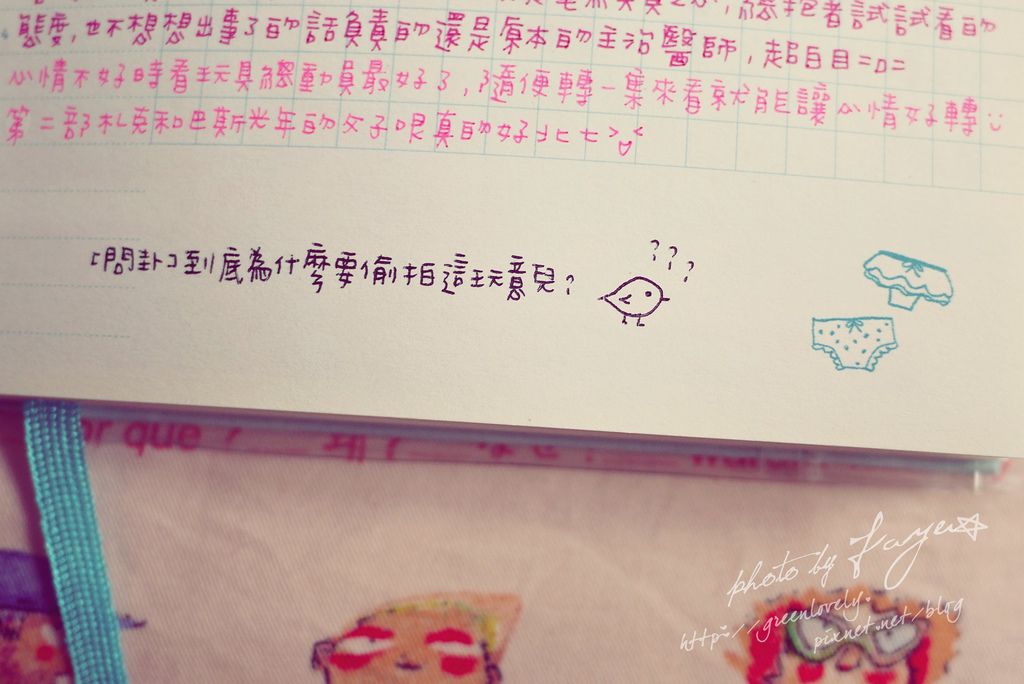 總抱著試試看的
態度,也不想想出事了的話負責的還是原本的主治醫師,超白目=口=
心情不好時看玩具總動員最好了,隨便轉一集來看就能讓心情好轉
第二部札克和巴斯光年的父子哏真的好北七>口<
「問卦」到底為什麼要偷拍這玩意兒?
???
or que ?
photo by Faye
http://greenlovely.
pixnet.net/blog